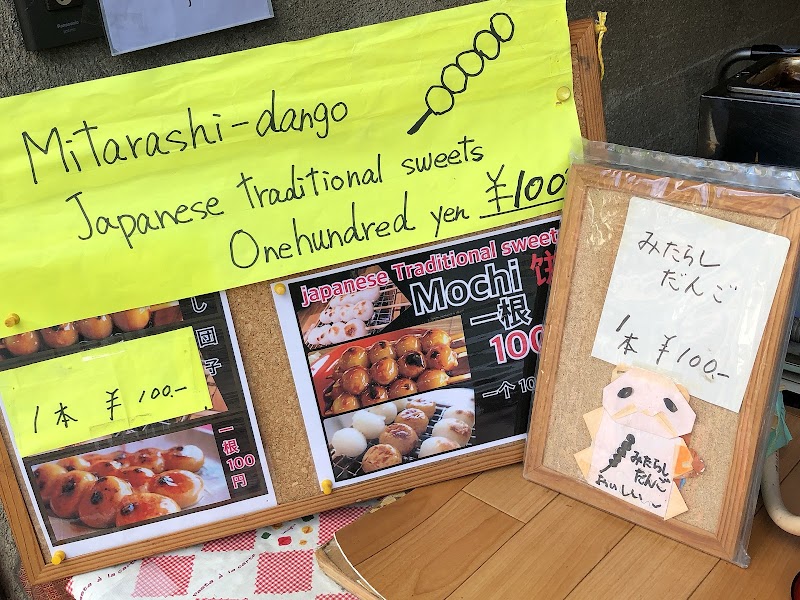 Panasonic
Mitarashi-dango
Japanese traditional sweets
Onehundred yen ¥100
し団子
1本 ¥100.-
一根
100
円
japanese Traditional sweet
Mochi 饼
一根
100
一个 10
みたらし
だんご
1本 ¥100.-
みたらし
だんご
おいしい